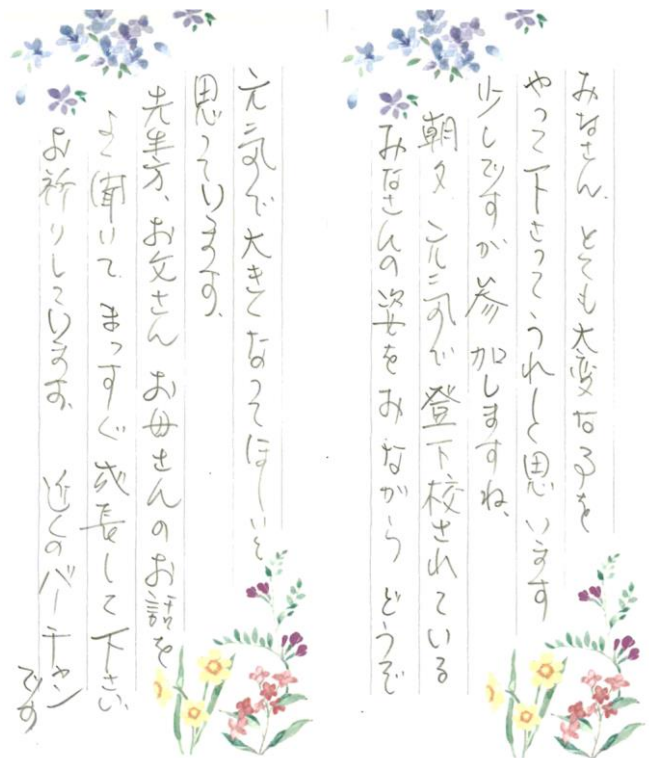 みなさん、とても大変なる事を
やって下さってうれしく思います
少しですが参加しますね、
朝夕、元気で登下校されている
みなさんの姿をみながらどうぞ
元気で大きくなってほしいと
思っています。
先生方、お父さんお母さんのお話を
よく聞いてまっすぐ成長して下さい、
お祈りしています。近くのバーチャン
です